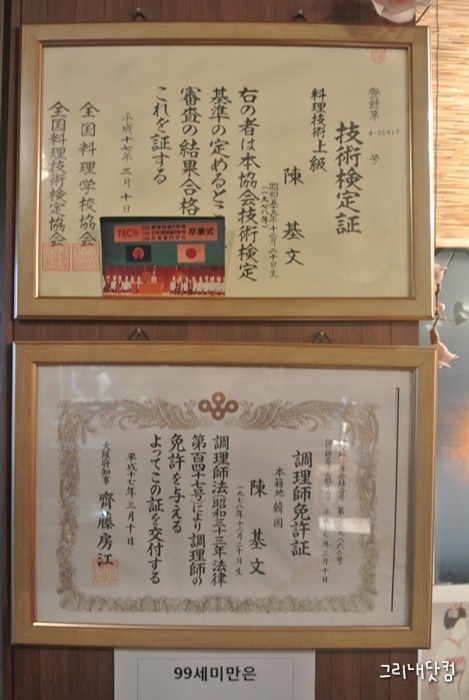 登録第 4-35617 号
技術検定証
料理技術上級
陳 基文
昭和五十三年十二月二十日生
(一九七八年)
右の者は本協会技術検定
基準の定めると
審査の結果合格
これを証する
平成十七年三月十日
全国料理学校協会
全国料理技術検定協会
TEC
卒業式
平成十七年三月十日
調理師免許証
本籍地 韓国
陳 基文
一九七八年十二月二十日生
調理師法(昭和三十三年法律
第百四十七号)により調理師の
免許を与える
よってこの証を交付する
平成十七年三月十日
大阪府知事 齊藤房江
99세미만은
그리내닷컴